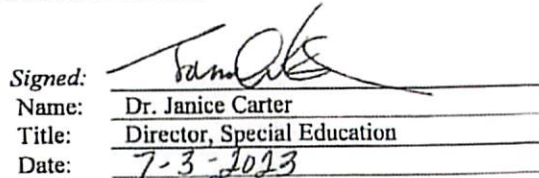 Signed:
Name: Dr. Janice Carter
Title: Director, Special Education
Date: 7-3-2023